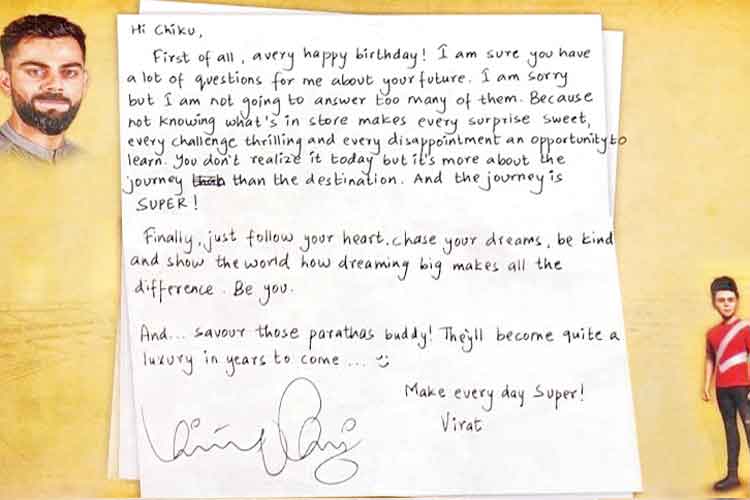 Hi Chiku,
First of all, a very happy birthday! I am sure you have
a lot of questions for me about your future. I am sorry
but I am not going to answer too many of them. Because
not knowing what's in store makes every surprise sweet,
every challenge thrilling and every disappointment an opportunity to
learn. You don't realize it today but it's more about the
journey than the destination. And the journey is
SUPER!
Finally, just follow your heart, chase your dreams, be kind
and show the world how dreaming big makes all the
difference. Be you.
And... savour those parathas buddy! They'll become quite a
luxury in years to come ...
Make every day Super!
Virat